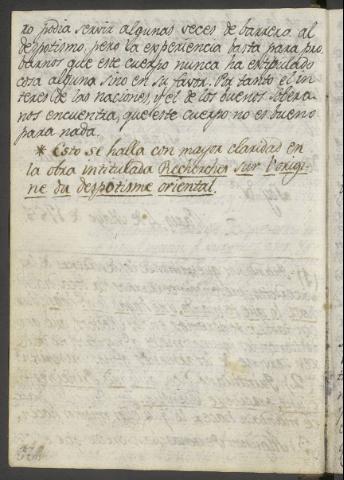 ro podia servir algunas veces de barrera al
despotismo, pero la experiencia basta para pro
barnos que este cuerpo nunca ha entablado
cosa alguna sino en su favor. Por tanto el in
teres de las naciones, y el de los buenos sobera
nos encuentra, que este cuerpo no es bueno
para nada.
* Esto se halla con mayor claridad en
la obra intitulada Recherches sur l'origi-
ne du despotisme oriental.